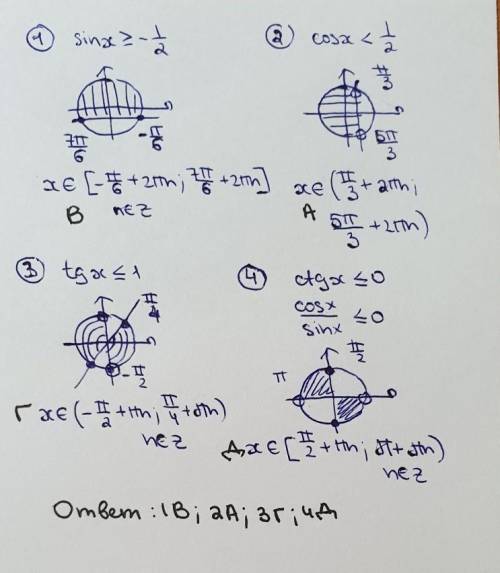 ① sinx ≥ -1/2
7π/6 -π/6
x∈[-π/6+2πn; 7π/6+2πn]
В n∈Z
② cosx < 1/2
π/3
5π/3
x∈(π/3+2πn;
А 5π/3+2πn)
③ tgx ≤ 1
π/4
-π/2
Г x∈(-π/2+πn; π/4+πn)
n∈Z
④ ctgx ≤ 0
cosx/sinx ≤ 0
π/2
π
Д x∈[π/2+πn; π+πn)
n∈Z
Ответ: 1В; 2А; 3Г; 4Д